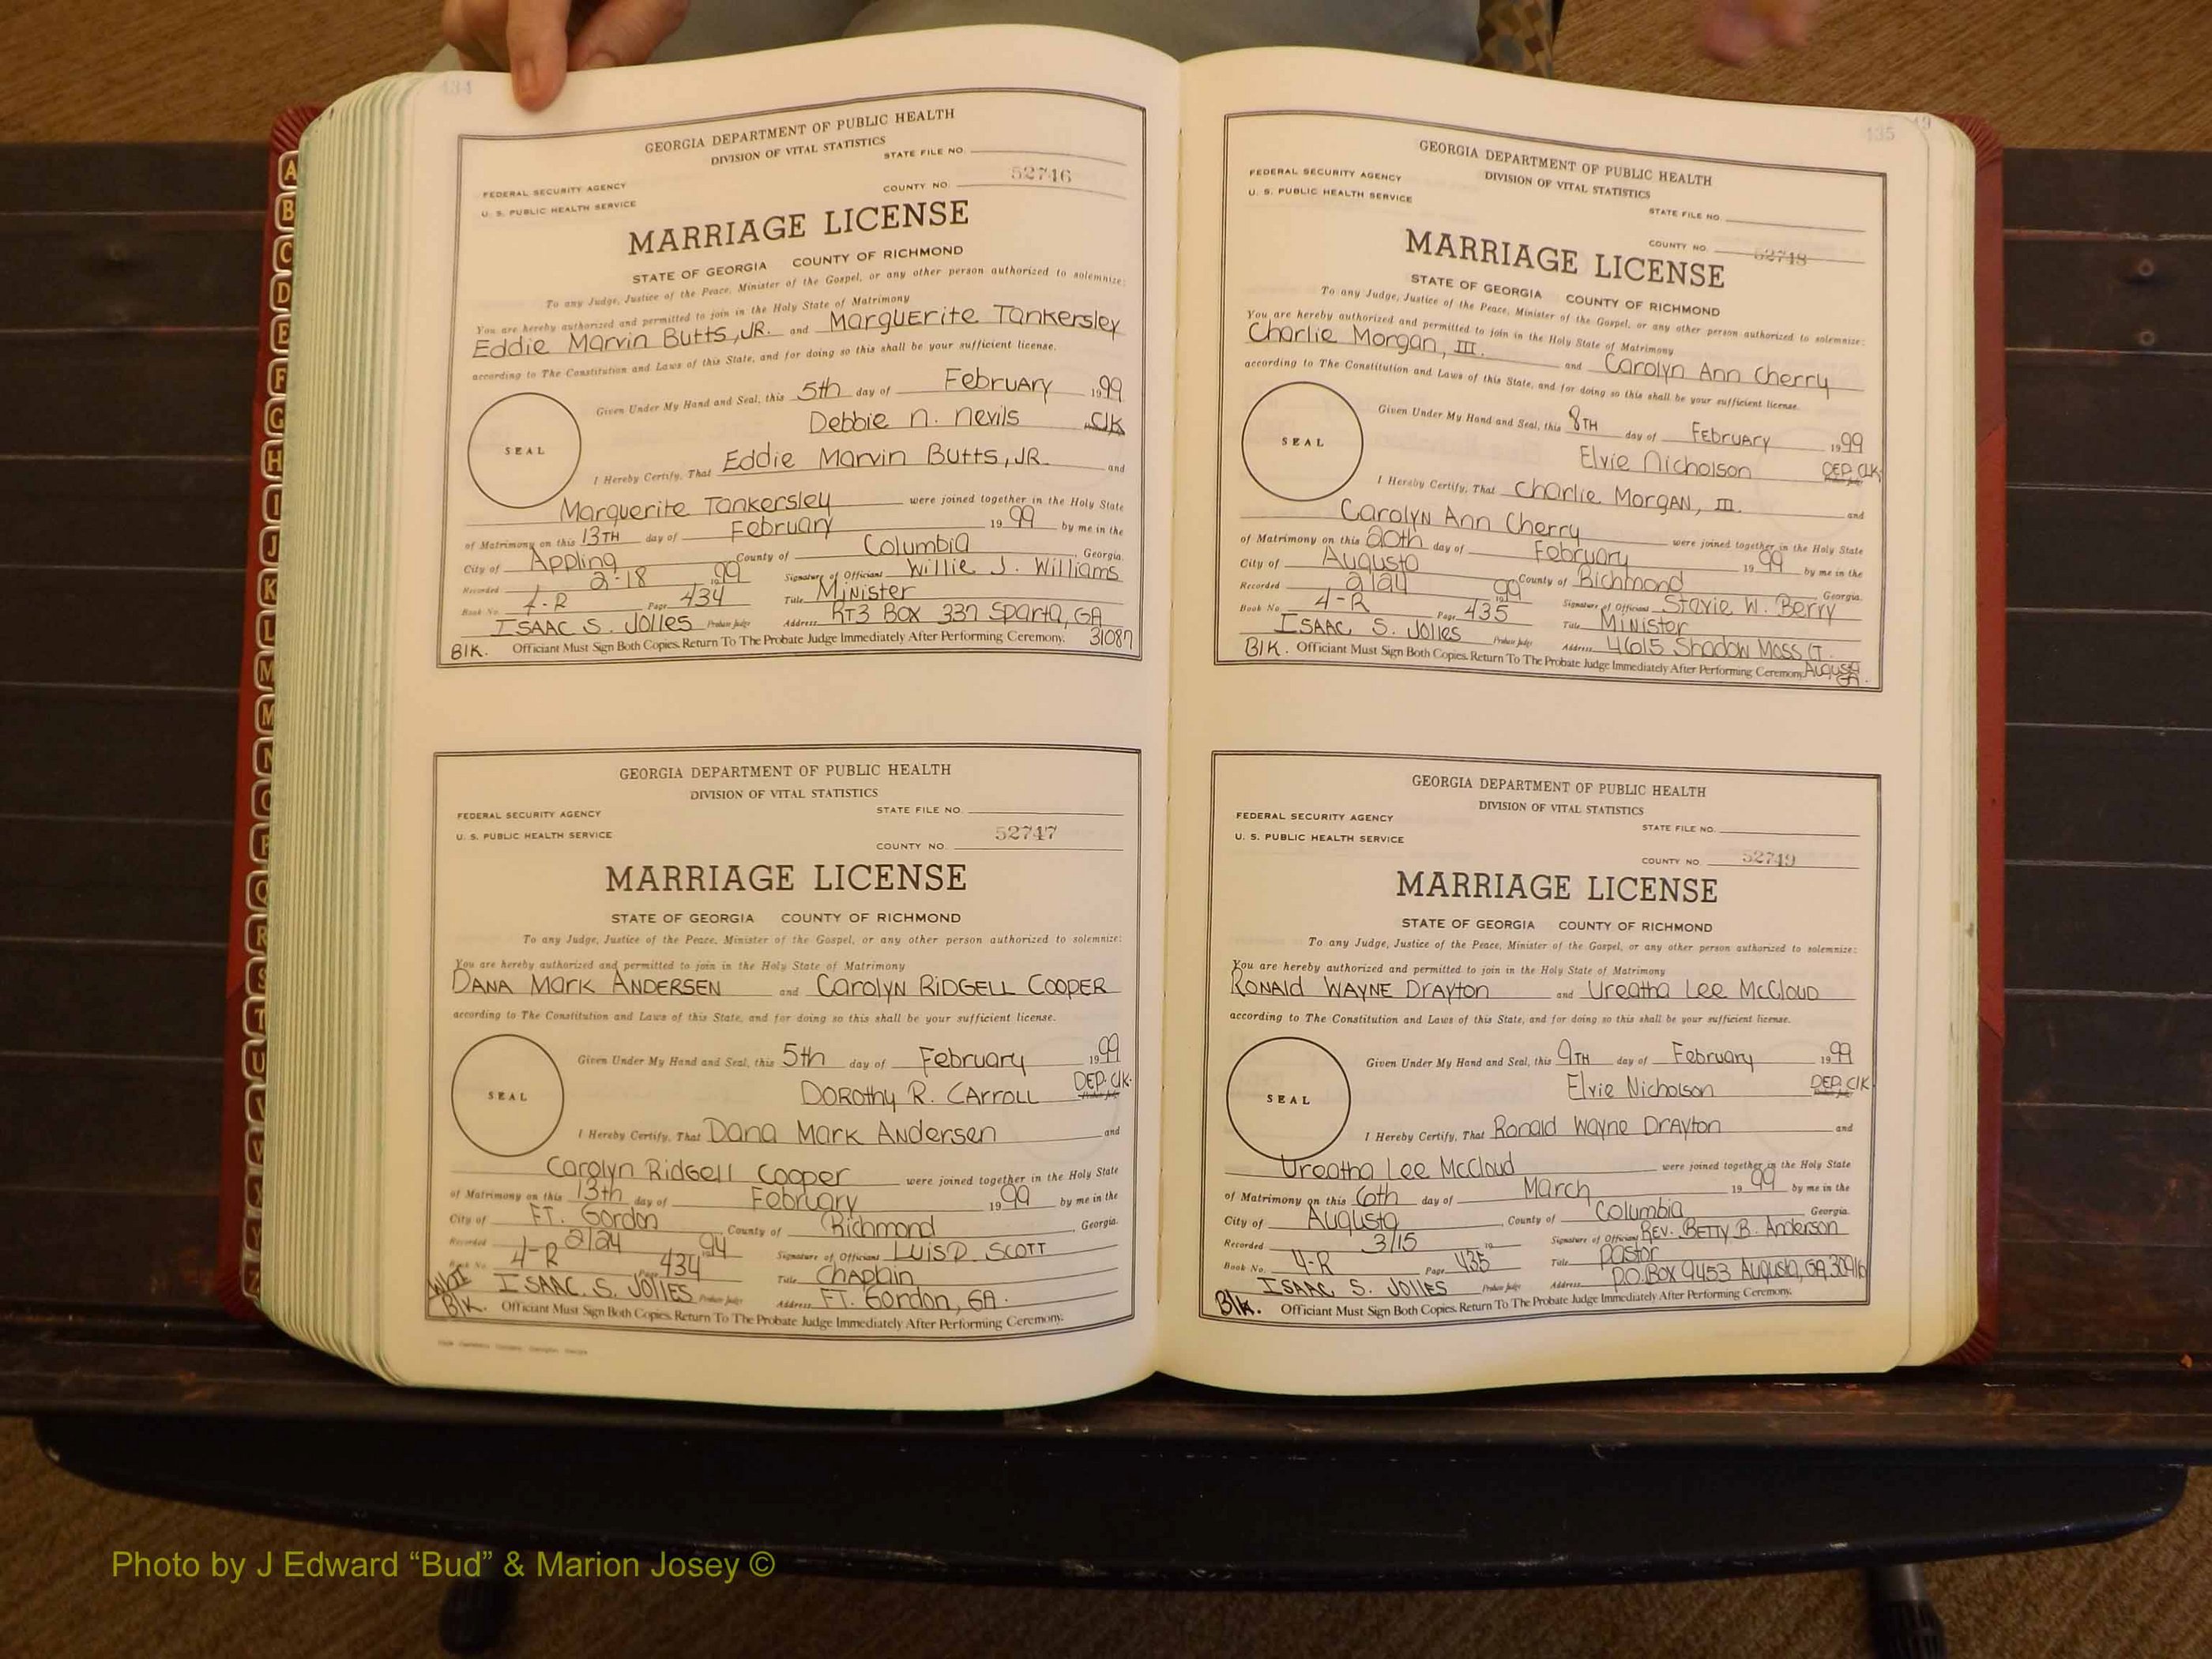 434
GEORGIA DEPARTMENT OF PUBLIC HEALTH
DIVISION OF VITAL STATISTICS
STATE FILE NO.
FEDERAL SECURITY AGENCY
COUNTY NO. 52746
U. S. PUBLIC HEALTH SERVICE
MARRIAGE LICENSE
STATE OF GEORGIA COUNTY OF RICHMOND
To any Judge, Justice of the Peace, Minister of the Gospel, or any other person authorized to solemnize:
You are hereby authorized and permitted to join in the Holy State of Matrimony
Eddie Marvin Butts, JR. and Marguerite Tankersley
according to The Constitution and Laws of this State, and for doing so this shall be your sufficient license.
Given Under My Hand and Seal, this 5th day of February 1999
Debbie N. Nevils Clk
SEAL
I Hereby Certify, That Eddie Marvin Butts, JR. and
Marguerite Tankersley were joined together in the Holy State
of Matrimony on this 13TH day of February 1999 by me in the
City of Appling County of Columbia Georgia.
Recorded 2-18 1999 Signature of Officiant Willie J. Williams
Book No. 4-R Page 434 Title Minister
ISAAC S. JOLLES Probate Judge Address RT3 Box 337 Sparta, GA
Blk. Officiant Must Sign Both Copies. Return To The Probate Judge Immediately After Performing Ceremony. 31087
GEORGIA DEPARTMENT OF PUBLIC HEALTH
DIVISION OF VITAL STATISTICS
STATE FILE NO.
FEDERAL SECURITY AGENCY
U. S. PUBLIC HEALTH SERVICE
COUNTY NO. 52747
MARRIAGE LICENSE
STATE OF GEORGIA COUNTY OF RICHMOND
To any Judge, Justice of the Peace, Minister of the Gospel, or any other person authorized to solemnize:
You are hereby authorized and permitted to join in the Holy State of Matrimony
DANA MARK ANDERSEN and CAROLYN RIDGELL COOPER
according to The Constitution and Laws of this State, and for doing so this shall be your sufficient license.
Given Under My Hand and Seal, this 5th day of February 1999
DOROthy R. CArroll DEP. Clk.
SEAL
I Hereby Certify, That Dana Mark Andersen and
Carolyn Ridgell Cooper were joined together in the Holy State
of Matrimony on this 13th day of February 1999 by me in the
City of FT. Gordon County of Richmond Georgia.
Recorded 2/24 94 Signature of Officiant LUIS D. SCOTT
Book No. 4-R Page 434 Title Chaplain
ISAAC. S. JOLLES Probate Judge Address FT. Gordon, GA.
Blk. Officiant Must Sign Both Copies. Return To The Probate Judge Immediately After Performing Ceremony.
435
GEORGIA DEPARTMENT OF PUBLIC HEALTH
DIVISION OF VITAL STATISTICS
FEDERAL SECURITY AGENCY
U. S. PUBLIC HEALTH SERVICE
STATE FILE NO.
COUNTY NO. 52748
MARRIAGE LICENSE
STATE OF GEORGIA COUNTY OF RICHMOND
To any Judge, Justice of the Peace, Minister of the Gospel, or any other person authorized to solemnize:
You are hereby authorized and permitted to join in the Holy State of Matrimony
Charlie Morgan, III. and Carolyn Ann Cherry
according to The Constitution and Laws of this State, and for doing so this shall be your sufficient license.
Given Under My Hand and Seal, this 8TH day of February 1999
Elvie Nicholson DEP. Clk.
SEAL
I Hereby Certify, That Charlie Morgan, III. and
Carolyn Ann Cherry were joined together in the Holy State
of Matrimony on this 20th day of February 1999 by me in the
City of Augusta County of Richmond Georgia.
Recorded 2/24 1999 Signature of Officiant Stavie W. Berry
Book No. 4-R Page 435 Title Minister
ISAAC S. JOLLES Probate Judge Address 4615 Shadow Moss CT.
Blk. Officiant Must Sign Both Copies. Return To The Probate Judge Immediately After Performing Ceremony. Augusta GA.
GEORGIA DEPARTMENT OF PUBLIC HEALTH
DIVISION OF VITAL STATISTICS
FEDERAL SECURITY AGENCY
STATE FILE NO.
U. S. PUBLIC HEALTH SERVICE
COUNTY NO. 52749
MARRIAGE LICENSE
STATE OF GEORGIA COUNTY OF RICHMOND
To any Judge, Justice of the Peace, Minister of the Gospel, or any other person authorized to solemnize:
You are hereby authorized and permitted to join in the Holy State of Matrimony
RONAld WAYNE DrAyton and Ureatha Lee McCloud
according to The Constitution and Laws of this State, and for doing so this shall be your sufficient license.
Given Under My Hand and Seal, this 9TH day of February 1999
Elvie Nicholson DEP. Clk
SEAL
I Hereby Certify, That Ronald Wayne Drayton and
Ureatha Lee McCloud were joined together in the Holy State
of Matrimony on this 6th day of March 1999 by me in the
City of Augusta County of Columbia Georgia.
Recorded 3/15 19 Signature of Officiant Rev. Betty B. Anderson
Book No. 4-R Page 435 Title Pastor
ISAAC S. JOLLES Probate Judge Address P.O. Box 9453 Augusta, GA 30916
Blk. Officiant Must Sign Both Copies. Return To The Probate Judge Immediately After Performing Ceremony.
A
B
C
D
E
F
G
H
I
J
K
L
M
M
N
O
P
Q
R
S
T
U
V
W
X
Y
Z
Photo by J Edward “Bud” & Marion Josey ©